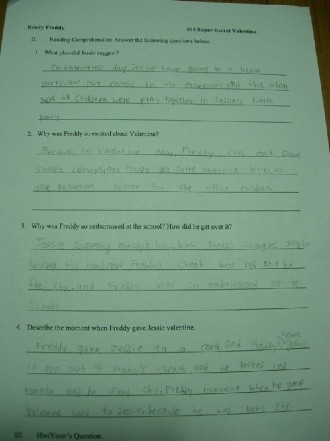 Ready Freddy #10 Super-Secret Valentine
II. Reading Comprehension: Answer the following questions below.
1. What plan did Jessie suggest?
On valentine day, Jessie have going to a little
party, and put candy in the
all children were play together in Jessie's little
party
2. Why was Freddy so excited about Valentine?
Because in Valentine day, Freddy can eat some
sweet candys, and Freddy get some valentine letter, or
give valentine letter for the other children.
3. Why was Freddy so embarrassed at the school? How did he get over it?
Jessie
his hand, and Freddy's cheek was red and he
feel shy, and Freddy was so embarrassed at the
School.
4. Describe the moment when Freddy gave Jessie valentine.
Freddy gave Jessie to a card, and Freddy's heart
to pop out of Freddy's chest, and he looked red
tomato and he feel shy, Freddy moment when he gave
Valentine card to Jessie because he was very shy.
III. HwiYuan's Question.